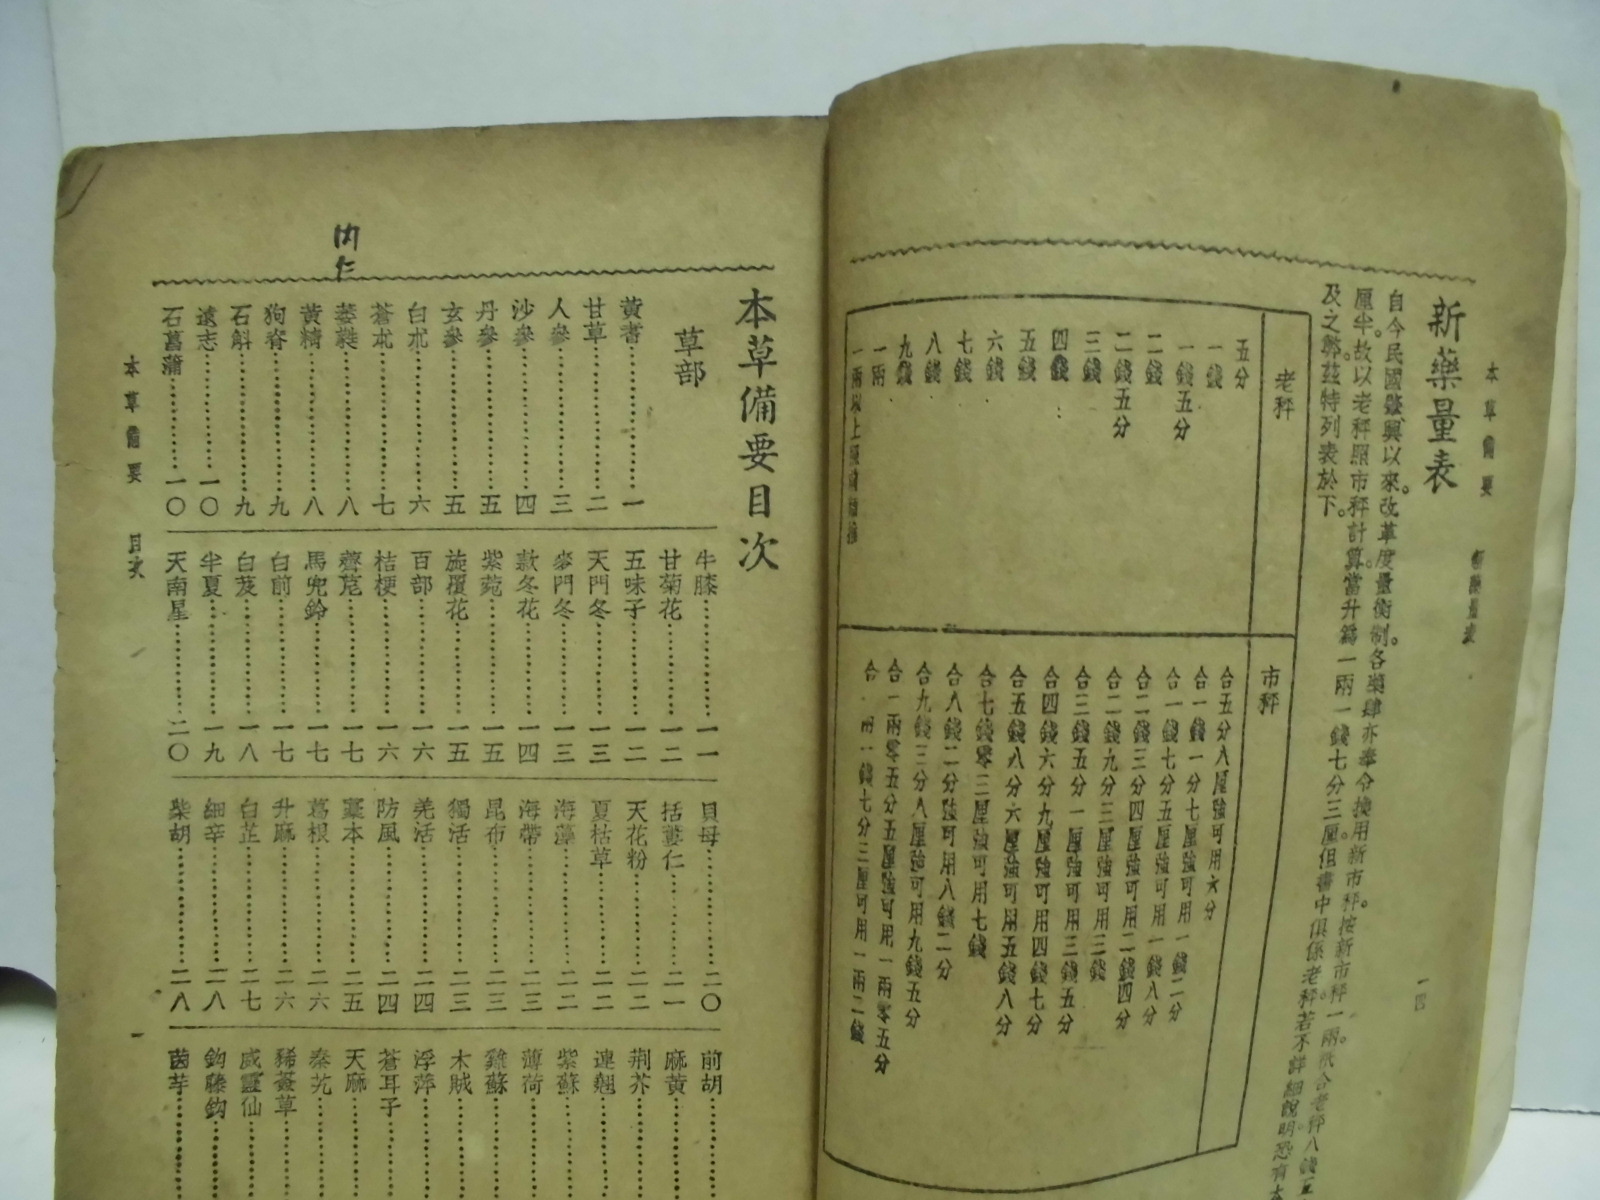 本草備要
新藥量表
一四
新藥量表
自今民國肇興以來。改革度量衡制。各藥肆亦奉令換用新市秤。按新市秤一兩。祇合老秤八錢五
厘半。故以老秤照市秤計算。當升為一兩一錢七分三厘。但書中俱係老秤。若不詳細說明。恐有太
及之弊。茲特列表於下。
老秤
市秤
五分
合五分八厘強可用六分
一錢
合一錢一分七厘強可用一錢二分
一錢五分
合一錢七分五厘強可用一錢八分
二錢
合二錢三分四厘強可用二錢四分
二錢五分
合二錢九分三厘強可用三錢
三錢
合三錢五分一厘強可用三錢五分
四錢
合四錢六分九厘強可用四錢七分
五錢
合五錢八分六厘強可用五錢八分
六錢
合七錢零三厘強可用七錢
七錢
合八錢二分強可用八錢二分
八錢
合九錢三分八厘強可用九錢五分
九錢
合一兩零五分五厘強可用一兩零五分
一兩
合一兩一錢七分三厘可用一兩二錢
一兩以上照此類推
內仁
本草備要目次
草部
黃耆……一
甘草……二
人參……三
沙參……四
丹參……五
玄參……五
白朮……六
蒼朮……七
萎蕤……八
黃精……八
狗脊……九
石斛……九
遠志……一〇
石菖蒲……一〇
牛膝……一一
甘菊花……一二
五味子……一二
天門冬……一三
麥門冬……一三
款冬花……一四
紫菀……一五
旋覆花……一五
百部……一六
桔梗……一六
薺苨……一七
馬兜鈴……一七
白前……一七
白芨……一八
半夏……一九
天南星……二〇
貝母……二〇
括蔞仁……二一
天花粉……二二
夏枯草……二二
海藻……二二
海帶……二三
昆布……二三
獨活……二三
羌活……二四
防風……二四
藁本……二五
葛根……二六
升麻……二六
白芷……二七
細辛……二八
柴胡……二八
前胡……
麻黃……
荊芥……
連翹……
紫蘇……
薄荷……
雞蘇……
木賊……
浮萍……
蒼耳子……
天麻……
秦艽……
豨薟草……
威靈仙……
鉤藤鉤……
茵芋……
本草備要
目次